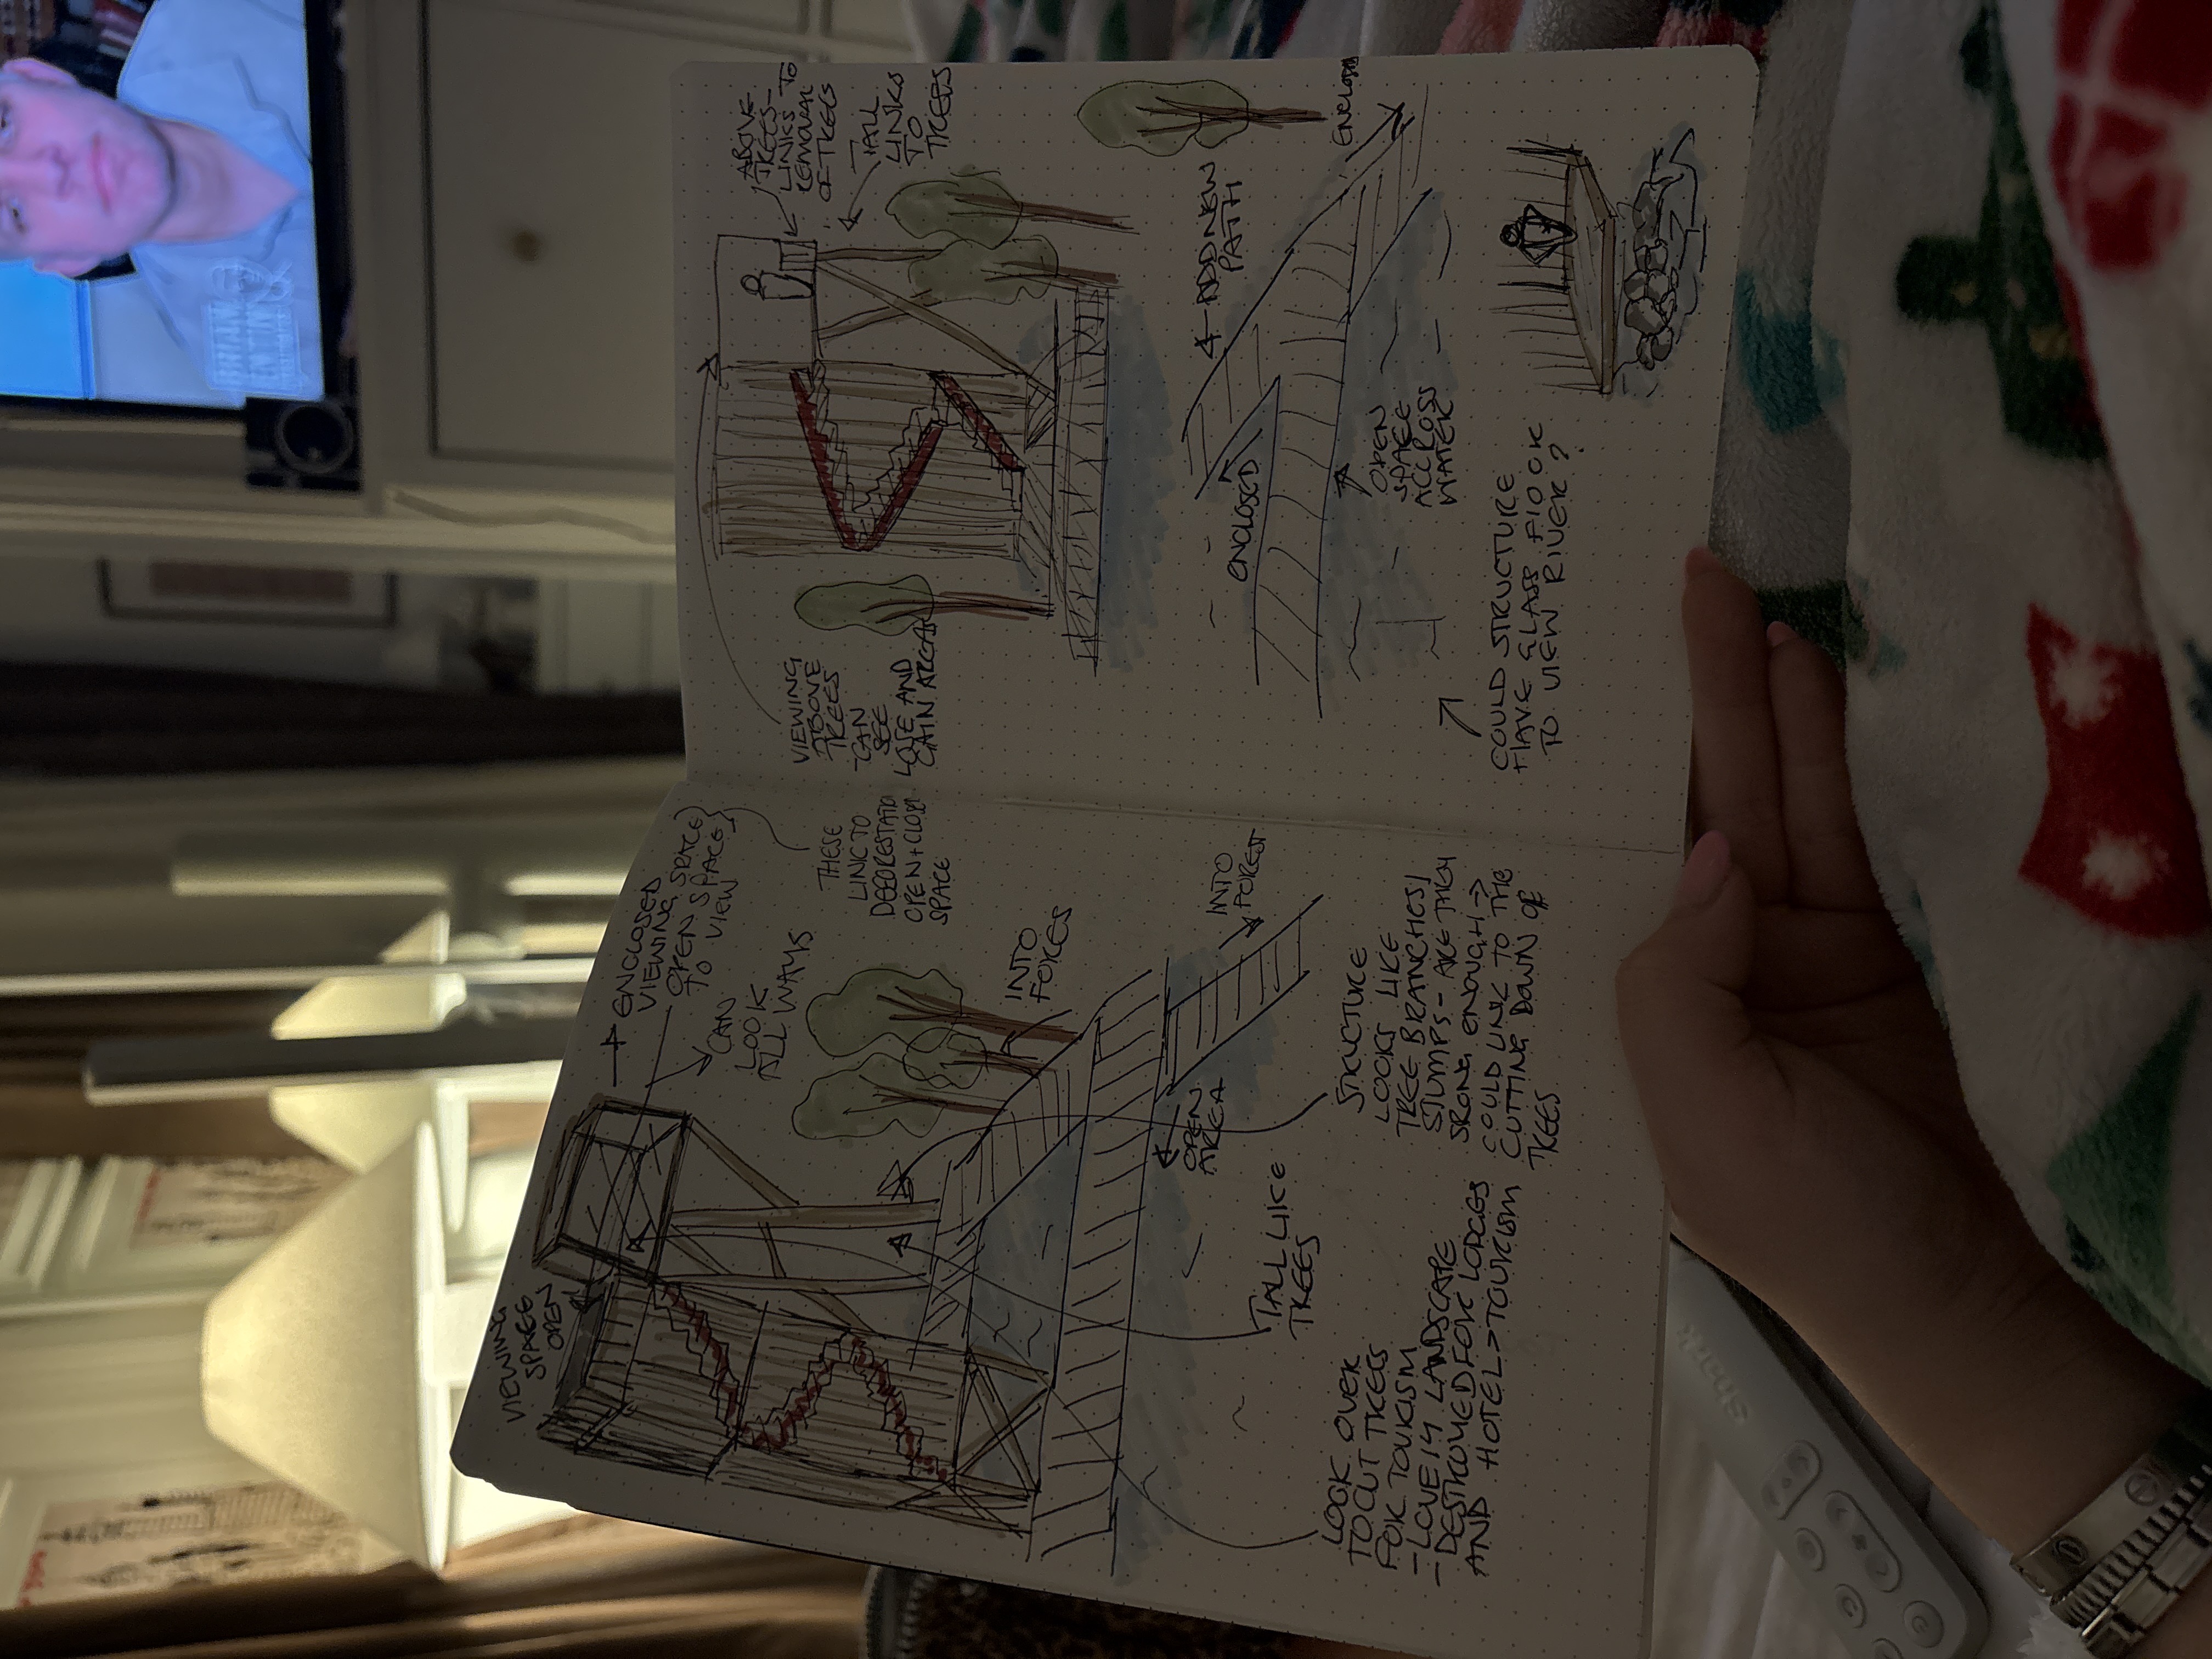 VIEWING
SPACE
OPEN
ENCLOSED
VIEWING
OPEN SPACE
TO VIEW
CAN
LOOK
ALL WAYS
THESE
LINK TO
OPEN + CLOSE
SPACE
INTO
INTO
FOREST
OPEN
AREA
TALL LIKE
TREES
LOOK OVER
TO CUT TREES
FOR TOURISM
- LOVELY LANDSCAPE
- DESTROYED FOR LODGES
AND HOTEL > TOURISM
STRUCTURE
LOOKS LIKE
TREE BRANCHES/
STUMPS - ARE THEY
SRONG ENOUGH →
COULD LINK TO THE
CUTTING DOWN OF
TREES
VIEWING
ABOVE
TREES
- CAN
SEE
LOSE AND
GAIN AREA
ABOVE
TREES -
LINKS TO
REMOVAL
OF TREES
- TALL
LINKS
TO
TREES
← ADD NEW
PATH
ENCLOSED
OPEN
SPACE
ACCROSS
WATER
COULD STRUCTURE
HAVE GLASS FLOOR
TO VIEW RIVER?
BRIAN
Smart